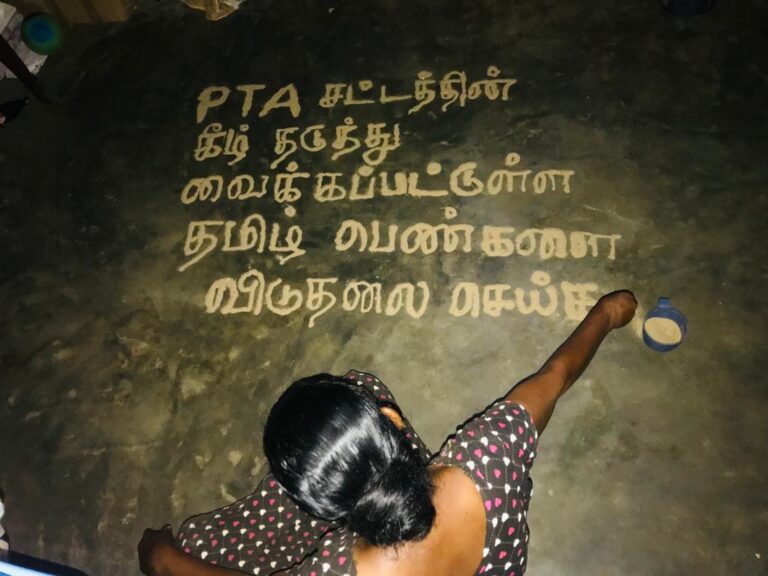 PTA சட்டத்தின்
கீழ் தடுத்து
வைக்கப்பட்டுள்ள
தமிழ் பெண்களை
விடுதலை செய்க